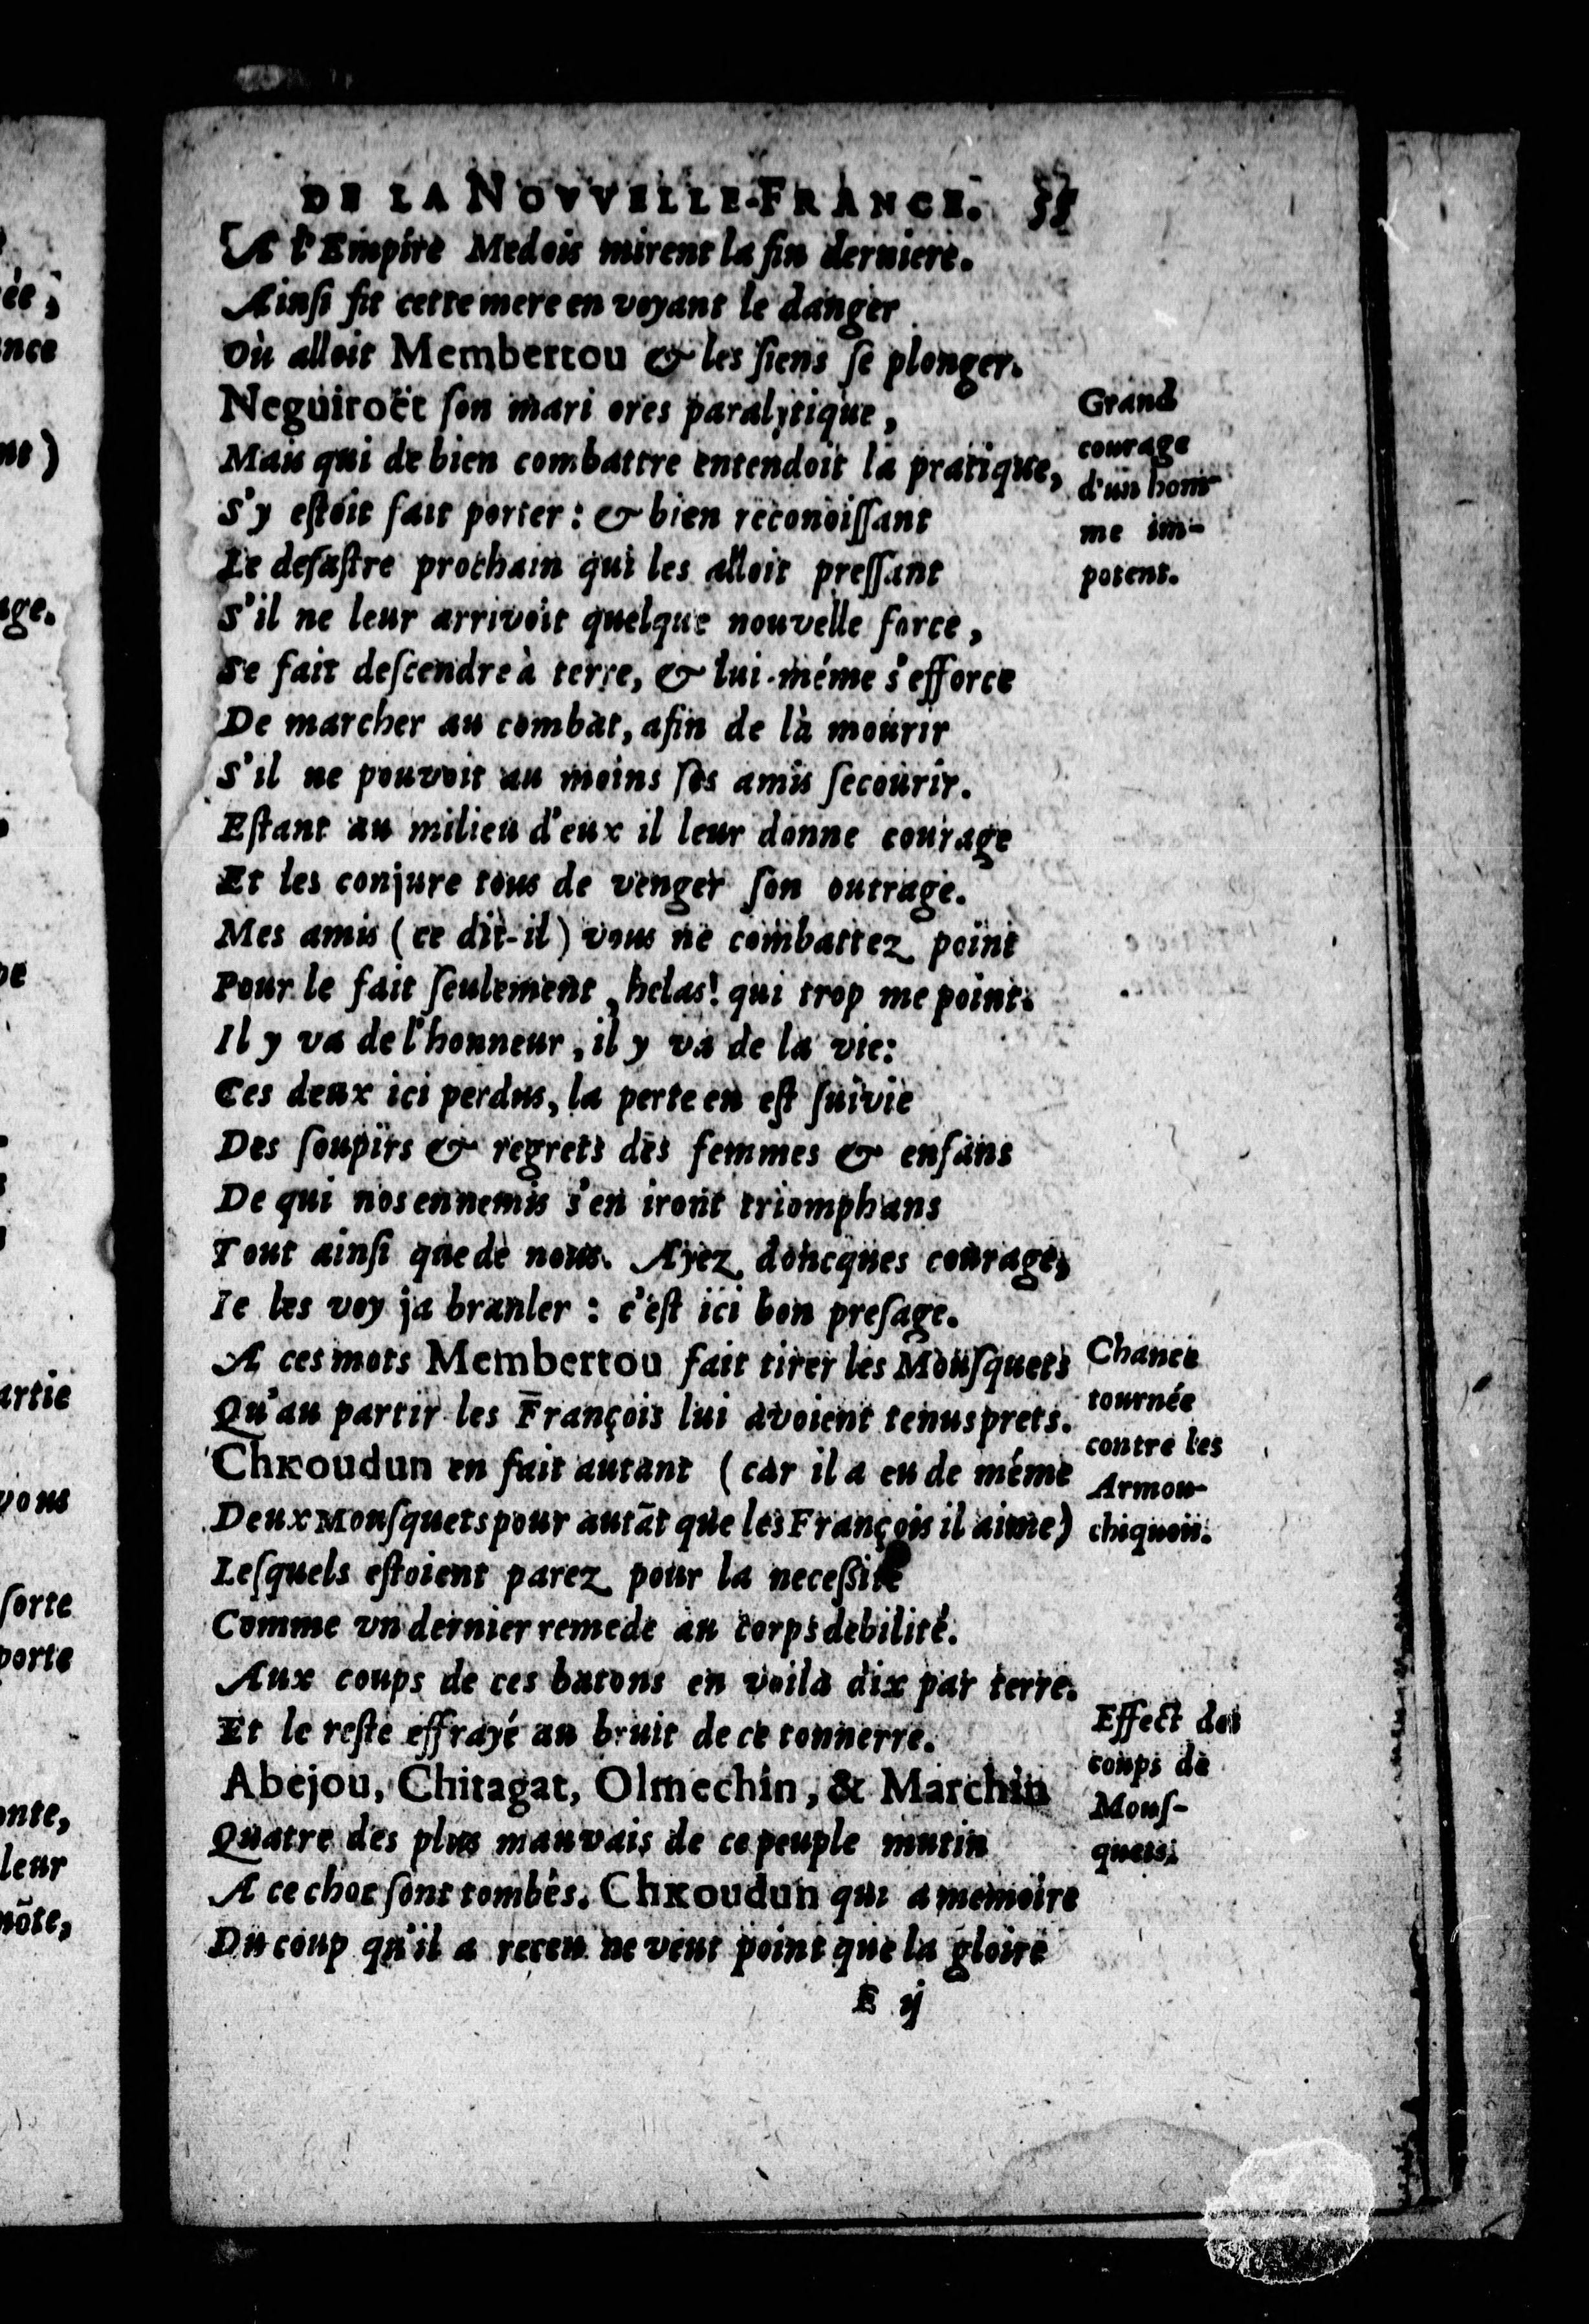 DE LA NOVVELLE-FRANCE. 35
A l'Empire Medois mirent la fin derniere.
Ainſi fit cette mere en voyant le danger
Où alloit Membertou & les ſiens ſe plonger.
Neguiroët ſon mari ores paralytique,
Mais qui de bien combattre entendoit la pratique,
S'y eſtoit fait porter : & bien reconoiſſant
Le deſaſtre prochain qui les alloit preſſant
S'il ne leur arrivoit quelque nouvelle force,
Se fait deſcendre à terre, & lui-méme s'efforce
De marcher au combat, afin de là mourir
S'il ne pouvoit au moins ſes amis ſecourir.
Grand
courage
d'un hom-
me im-
potent.
Eſtant au milieu d'eux il leur donne courage
Et les conjure tous de venger ſon outrage.
Mes amis (ce dit-il) vous ne combattez point
Pour le fait ſeulement, helas! qui trop me point.
Il y va de l'honneur, il y va de la vie:
Ces deux ici perdus, la perte en eſt ſuivie
Des ſoupirs & regrets dès femmes & enfans
De qui nos ennemis s'en iront triomphans
Tout ainſi que de nous. Ayez doncques courage,
Ie les voy ja branler : c'eſt ici bon preſage.
A ces mots Membertou fait tirer les Mouſquets
Qu'au partir les François lui avoient tenus prets.
Chkoudun en fait autant (car il a eu de méme
Deux Mouſquets pour autãt que les François il aime)
Leſquels eſtoient parez pour la neceſſité
Comme vn dernier remede au corps debilité.
Chance
tournée
contre les
Armou-
chiquois.
Aux coups de ces batons en voila dix par terre.
Et le reſte effrayé au bruit de ce tonnerre.
Abejou, Chitagat, Olmechin, & Marchin
Quatre des plus mauvais de ce peuple mutin
A ce choc ſont tombés. Chkoudun qui a memoire
Du coup qu'il a receu ne veut point que la gloire
Effect des
coups de
Mouſ-
quets.
E ij